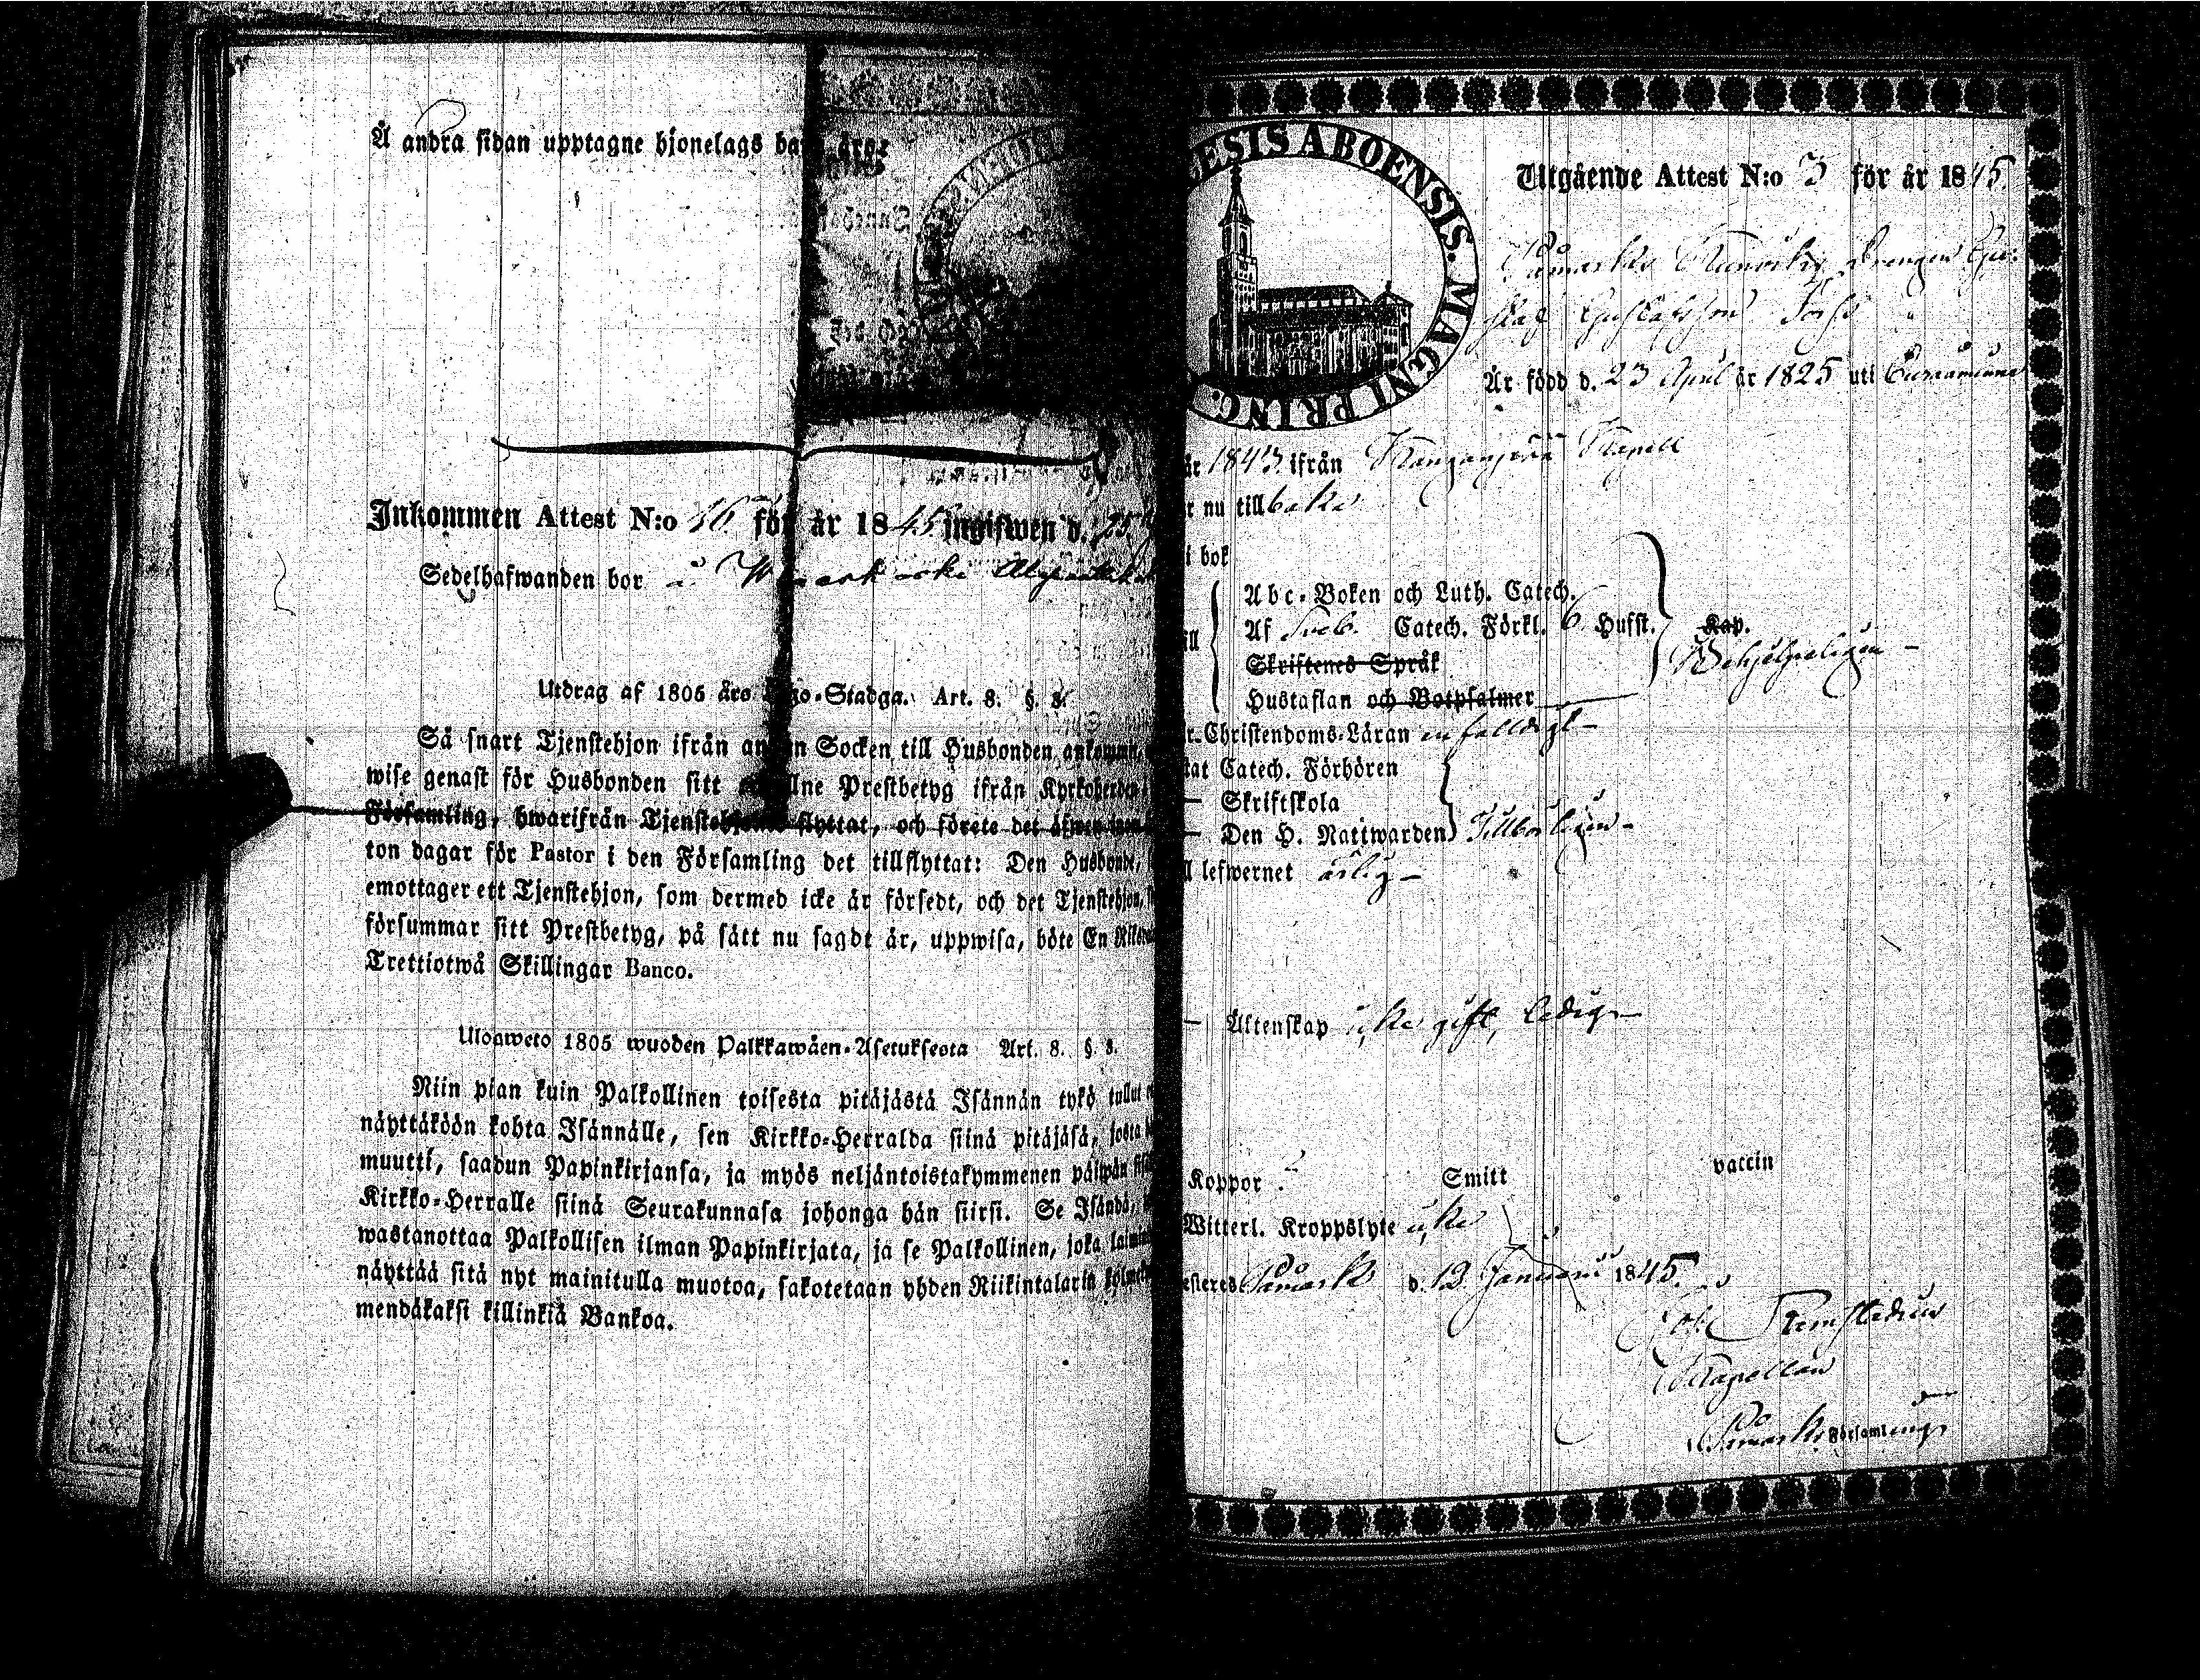 Å andra sidan upptagne hjonelags barn äro:
Inkommen Attest N:o 16 för år 1845 ingifwen d. 25
Sedelhafwanden bor å
Utdrag af 1805 års Lego-Stadga. Art. 8. §. 8.
Så snart Tjenstehjon ifrån annan Socken till Husbonden ankommit,
wise genast för Husbonden sitt erhållne Prestbetyg ifrån Kyrkoherden i
Församling, hwarifrån Tjenstehjonet flyttat, och förete det äfwen inom
ton dagar för Pastor i den Församling det tillflyttat: Den Husbonde,
emottager ett Tjenstehjon, som dermed icke är försedt, och det Tjenstehjon,
försummar sitt Prestbetyg, på sätt nu sagdt är, uppwisa, böte En Riksd
Trettiotwå Skillingar Banco.
Ulosweto 1805 wuoden Palkkawäen-Asetuksesta Art. 8. §. 8.
Niin pian kuin Palkollinen toisesta pitäjästä Isännän tykö tullut
näyttäköön kohta Isännälle, sen Kirkko-Herralda siinä pitäjäsä, josta
muutti, saadun Papinkirjansa, ja myös neljäntoistakymmenen päiwän
Kirkko-Herralle siinä Seurakunnasa johonga hän siirsi. Se Isändä,
wastanottaa Palkollisen ilman Papinkirjata, ja se Palkollinen, joka
näyttää sitä nyt mainitulla muotoa, sakotetaan yhden Riikintalarin
mendäkaksi killinkiä Bankoa.
ESIS ABOENSIS. MAGNI PRINC.
Utgående Attest N:o 3 för år 1845.
Påmarks Drengen Gu-
staf Gustafsson
Är född d. 23 April år 1825 uti Euraåminne
år 1843 ifrån Kapell
r nu tillbaka
i bok
Abc-Boken och Luth. Catech.
Af Sveb. Catech. Förkl. 6 Hufst. Kap.
Skriftenes Språk
Behjelpeligen
Hustaflan och Botpsalmer
r. Christendoms-Läran enfaldigt
tat Catech. Förhören
Skriftskola
Den H. Nattwarden Tillbörligen
l lefwernet ärlig
Äktenskap icke gift, ledig
Koppor Smitt vaccin
Witterl. Kroppslyte icke
esteres Påmark d. 12 Januarii 1845.
Joh.
Kapellan
Påmarks Församling